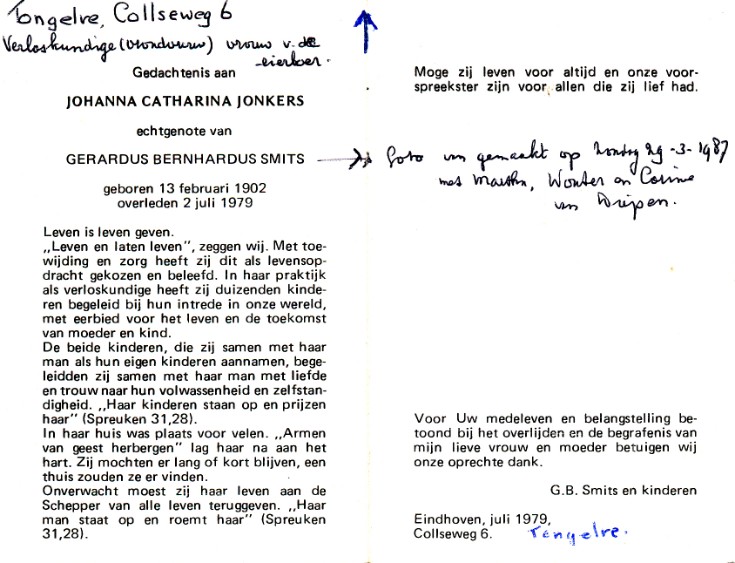 Tongelre, Collseweg 6
Verloskundige (vroedvrouw) vrouw v. de
eierboer.
Gedachtenis aan
JOHANNA CATHARINA JONKERS
echtgenote van
GERARDUS BERNHARDUS SMITS
geboren 13 februari 1902
overleden 2 juli 1979
Leven is leven geven.
„Leven en laten leven”, zeggen wij. Met toe-
wijding en zorg heeft zij dit als levensop-
dracht gekozen en beleefd. In haar praktijk
als verloskundige heeft zij duizenden kinde-
ren begeleid bij hun intrede in onze wereld,
met eerbied voor het leven en de toekomst
van moeder en kind.
De beide kinderen, die zij samen met haar
man als hun eigen kinderen aannamen, bege-
leidden zij samen met haar man met liefde
en trouw naar hun volwassenheid en zelfstan-
digheid. „Haar kinderen staan op en prijzen
haar” (Spreuken 31,28).
In haar huis was plaats voor velen. „Armen
van geest herbergen” lag haar na aan het
hart. Zij mochten er lang of kort blijven, een
thuis zouden ze er vinden.
Onverwacht moest zij haar leven aan de
Schepper van alle leven teruggeven. „Haar
man staat op en roemt haar” (Spreuken
31,28).
Moge zij leven voor altijd en onze voor-
spreekster zijn voor allen die zij lief had.
foto van gemaakt op zondag 29-3-1987
met Wouter en Corine
van
Voor Uw medeleven en belangstelling be-
toond bij het overlijden en de begrafenis van
mijn lieve vrouw en moeder betuigen wij
onze oprechte dank.
G.B. Smits en kinderen
Eindhoven, juli 1979,
Collseweg 6. Tongelre.